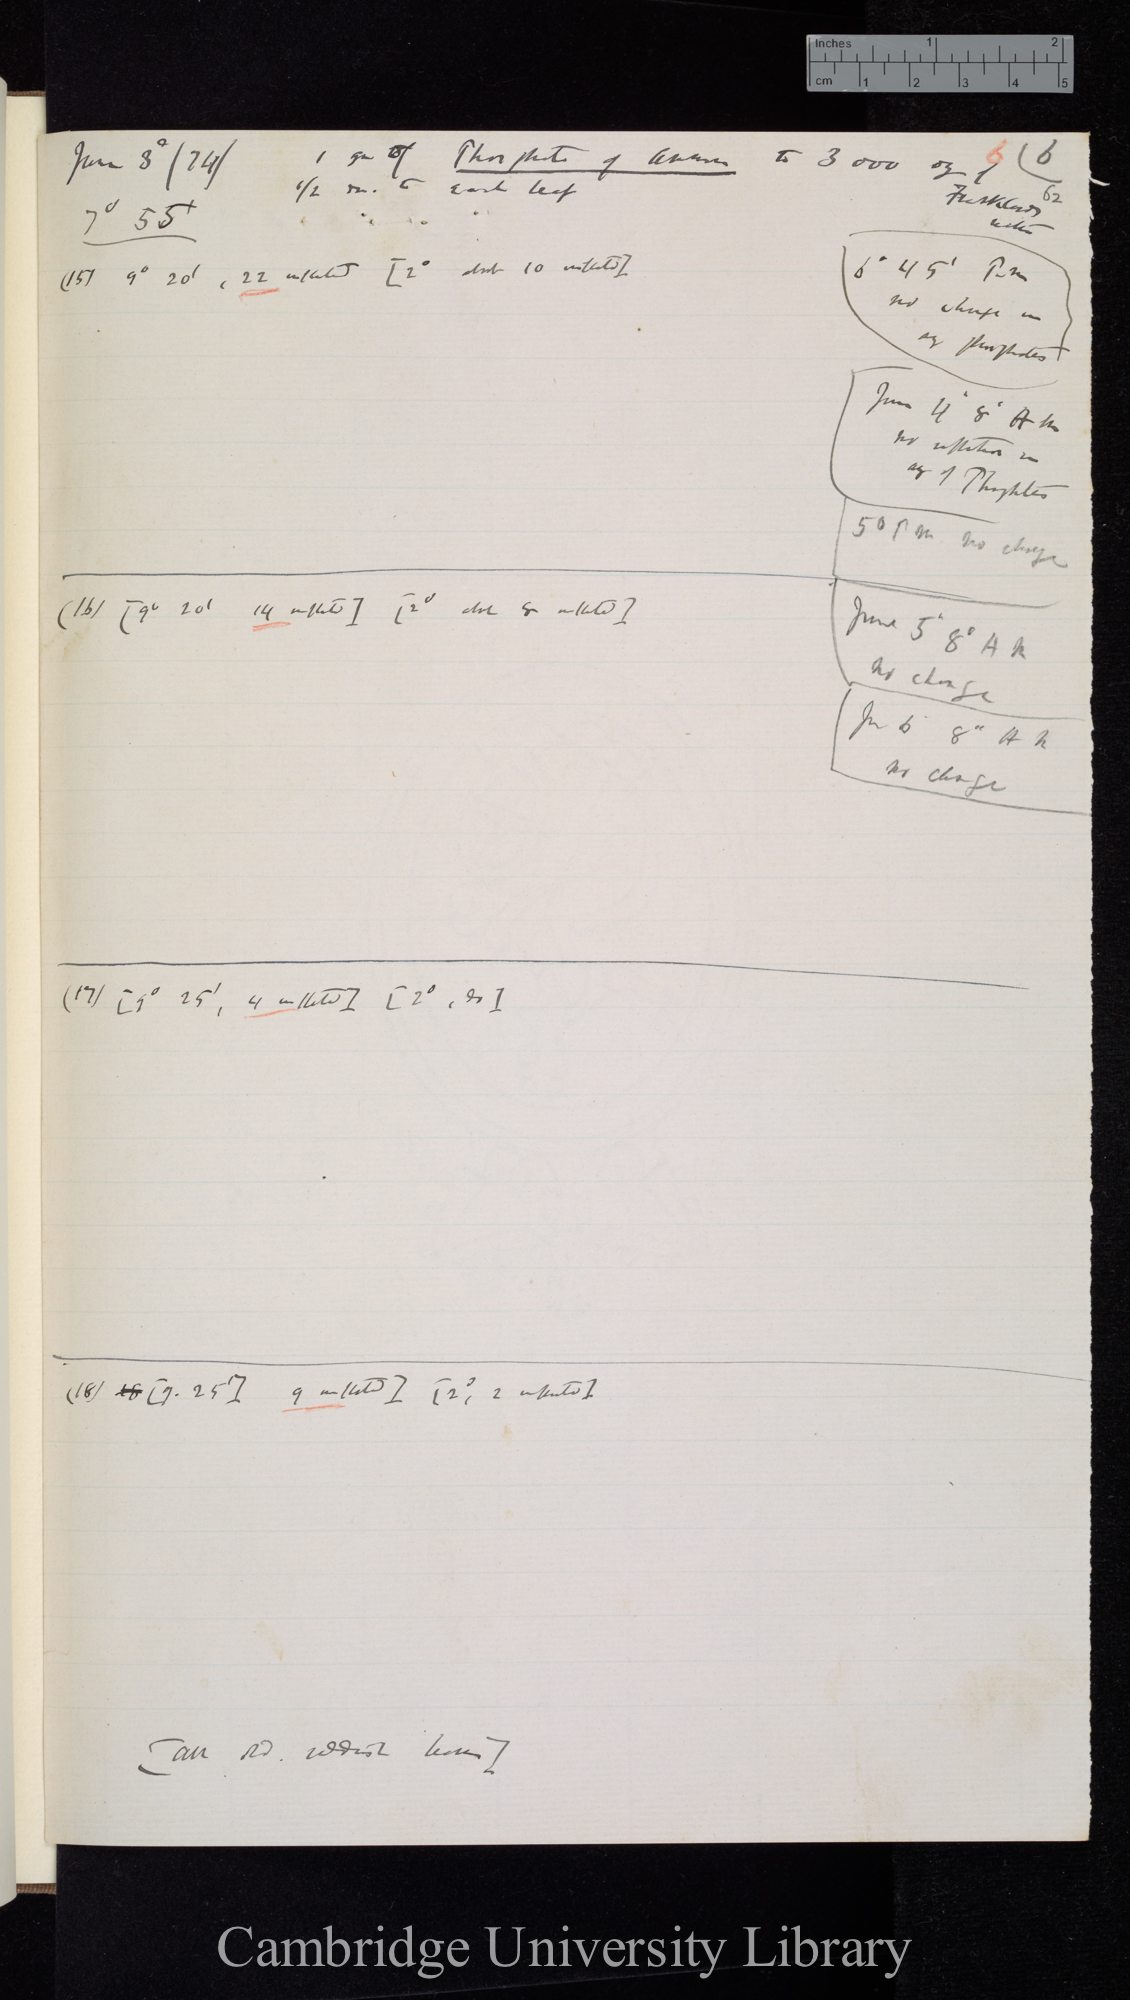 Inches 1 2
cm 1 2 3 4 5
June 3° (74) 1 gr of Phosphate of Ammon to 3000 oz of 6 (6
1/2 m. to each leaf Franklands 62
7° 55' water
(15) 9° 20', 22 inflected [2° about 10 inflected]
6° 45' P.m
no change in
aq phosphates
June 4° 8° A m
no inflection in
aq of Phosphates
5° P m no change
(16) [9° 20' 14 inflected] [2° about 8 inflected]
June 5° 8° A m
no change
June 6 8° A m
no change
(17) [9° 25', 4 inflected] [2°, do]
(18) 18 [9. 25'] 9 inflected] [2°, 2 inflected]
[all old. reddish leaves]
Cambridge University Library